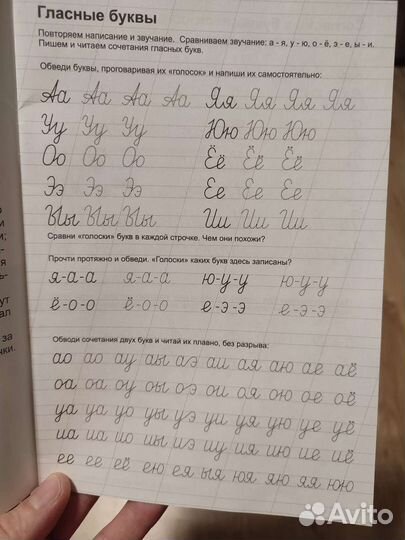 Гласные буквы
Повторяем написание и звучание. Сравниваем звучание: а - я, у - ю, о - ё, э - е, ы - и.
Пишем и читаем сочетания гласных букв.
Обведи буквы, проговаривая их «голосок» и напиши их самостоятельно:
Аа Аа Аа Аа Яя Яя Яя Яя
Уу Уу Уу Юю Юю Юю
Оо Оо Оо Ёё Ёё Ёё
Ээ Ээ Ээ Ее Ее Ее
Ыы Ыы Ыы Ии Ии Ии
Сравни «голоски» букв в каждой строчке. Чем они похожи?
Прочти протяжно и обведи. «Голоски» каких букв здесь записаны?
я-а-а я-а-а ю-у-у ю-у-у
ё-о-о ё-о-о е-э-э е-э-э
Обводи сочетания двух букв и читай их плавно, без разрыва:
ао ао ау аы аэ аи ая аю ае аё
оа оа оу оы оэ ои оя ою ое оё
уа уа уо уы уэ уи уя ую уе уё
иа иа ио иы иэ иу ия ию ие иё
ее ее её ею ея ыя юя яю яя юю
Avito